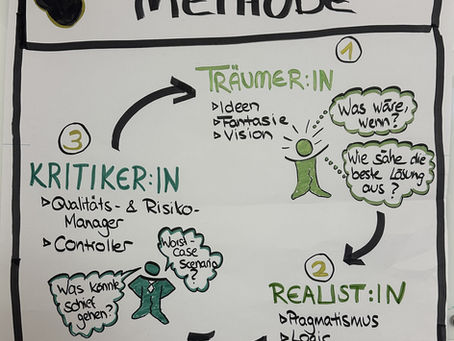 METHODE
1
TRÄUMER:IN
▹Ideen
▹Fantasie
▹Vision
Was wäre,
wenn?
Wie sähe die
beste Lösung
aus?
2
REALIST:IN
▹Pragmatismus
▹Logic
3
KRITIKER:IN
▹Qualitäts- & Risiko-
Manager
▹Controller
Worst-
Case
Szenario
?
Was könnte
schief
gehen?